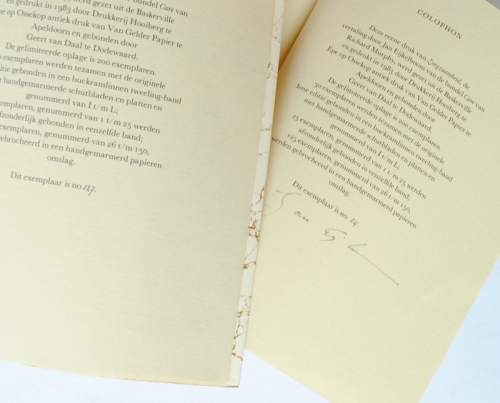 bundel Care van
werd gezet uit de Baskerville
gedrukt in 1983 door Drukkerij Hooiberg te
op Onekop antiek druk van Van Gelder Papier te
Apeldoorn en gebonden door
Geert van Daal te Dodewaard.
De gelimiteerde oplage is 200 exemplaren.
exemplaren werden tezamen met de originele
itie gebonden in een buckramlinnen tweeling-band
t handgemarmerde schutbladen en platten en
genummerd van I t/m L;
mplaren, genummerd van 1 t/m 25 werden
fzonderlijk gebonden in eenzelfde band;
exemplaren, genummerd van 26 t/m 150,
gebrocheerd in een handgemarmerd papieren
omslag.
Dit exemplaar is no. 127.
COLOPHON
Deze eerste druk van Zorgzaamheid, de
vertaling door Jan Eijkelboom van de bundel Care van
Richard Murphy, werd gezet uit de Baskerville
en gedrukt in 1983 door Drukkerij Hooiberg te
Epe op Onekop antiek druk van Van Gelder Papier te
Apeldoorn en gebonden door
Geert van Daal te Dodewaard.
De gelimiteerde oplage is 200 exemplaren.
50 exemplaren werden tezamen met de originele
Ierse editie gebonden in een buckramlinnen tweeling-band
met handgemarmerde schutbladen en platten en
genummerd van I t/m L;
25 exemplaren, genummerd van 1 t/m 25 werden
afzonderlijk gebonden in eenzelfde band;
125 exemplaren, genummerd van 26 t/m 150,
werden gebrocheerd in een handgemarmerd papieren
omslag.
Dit exemplaar is no.
Jan